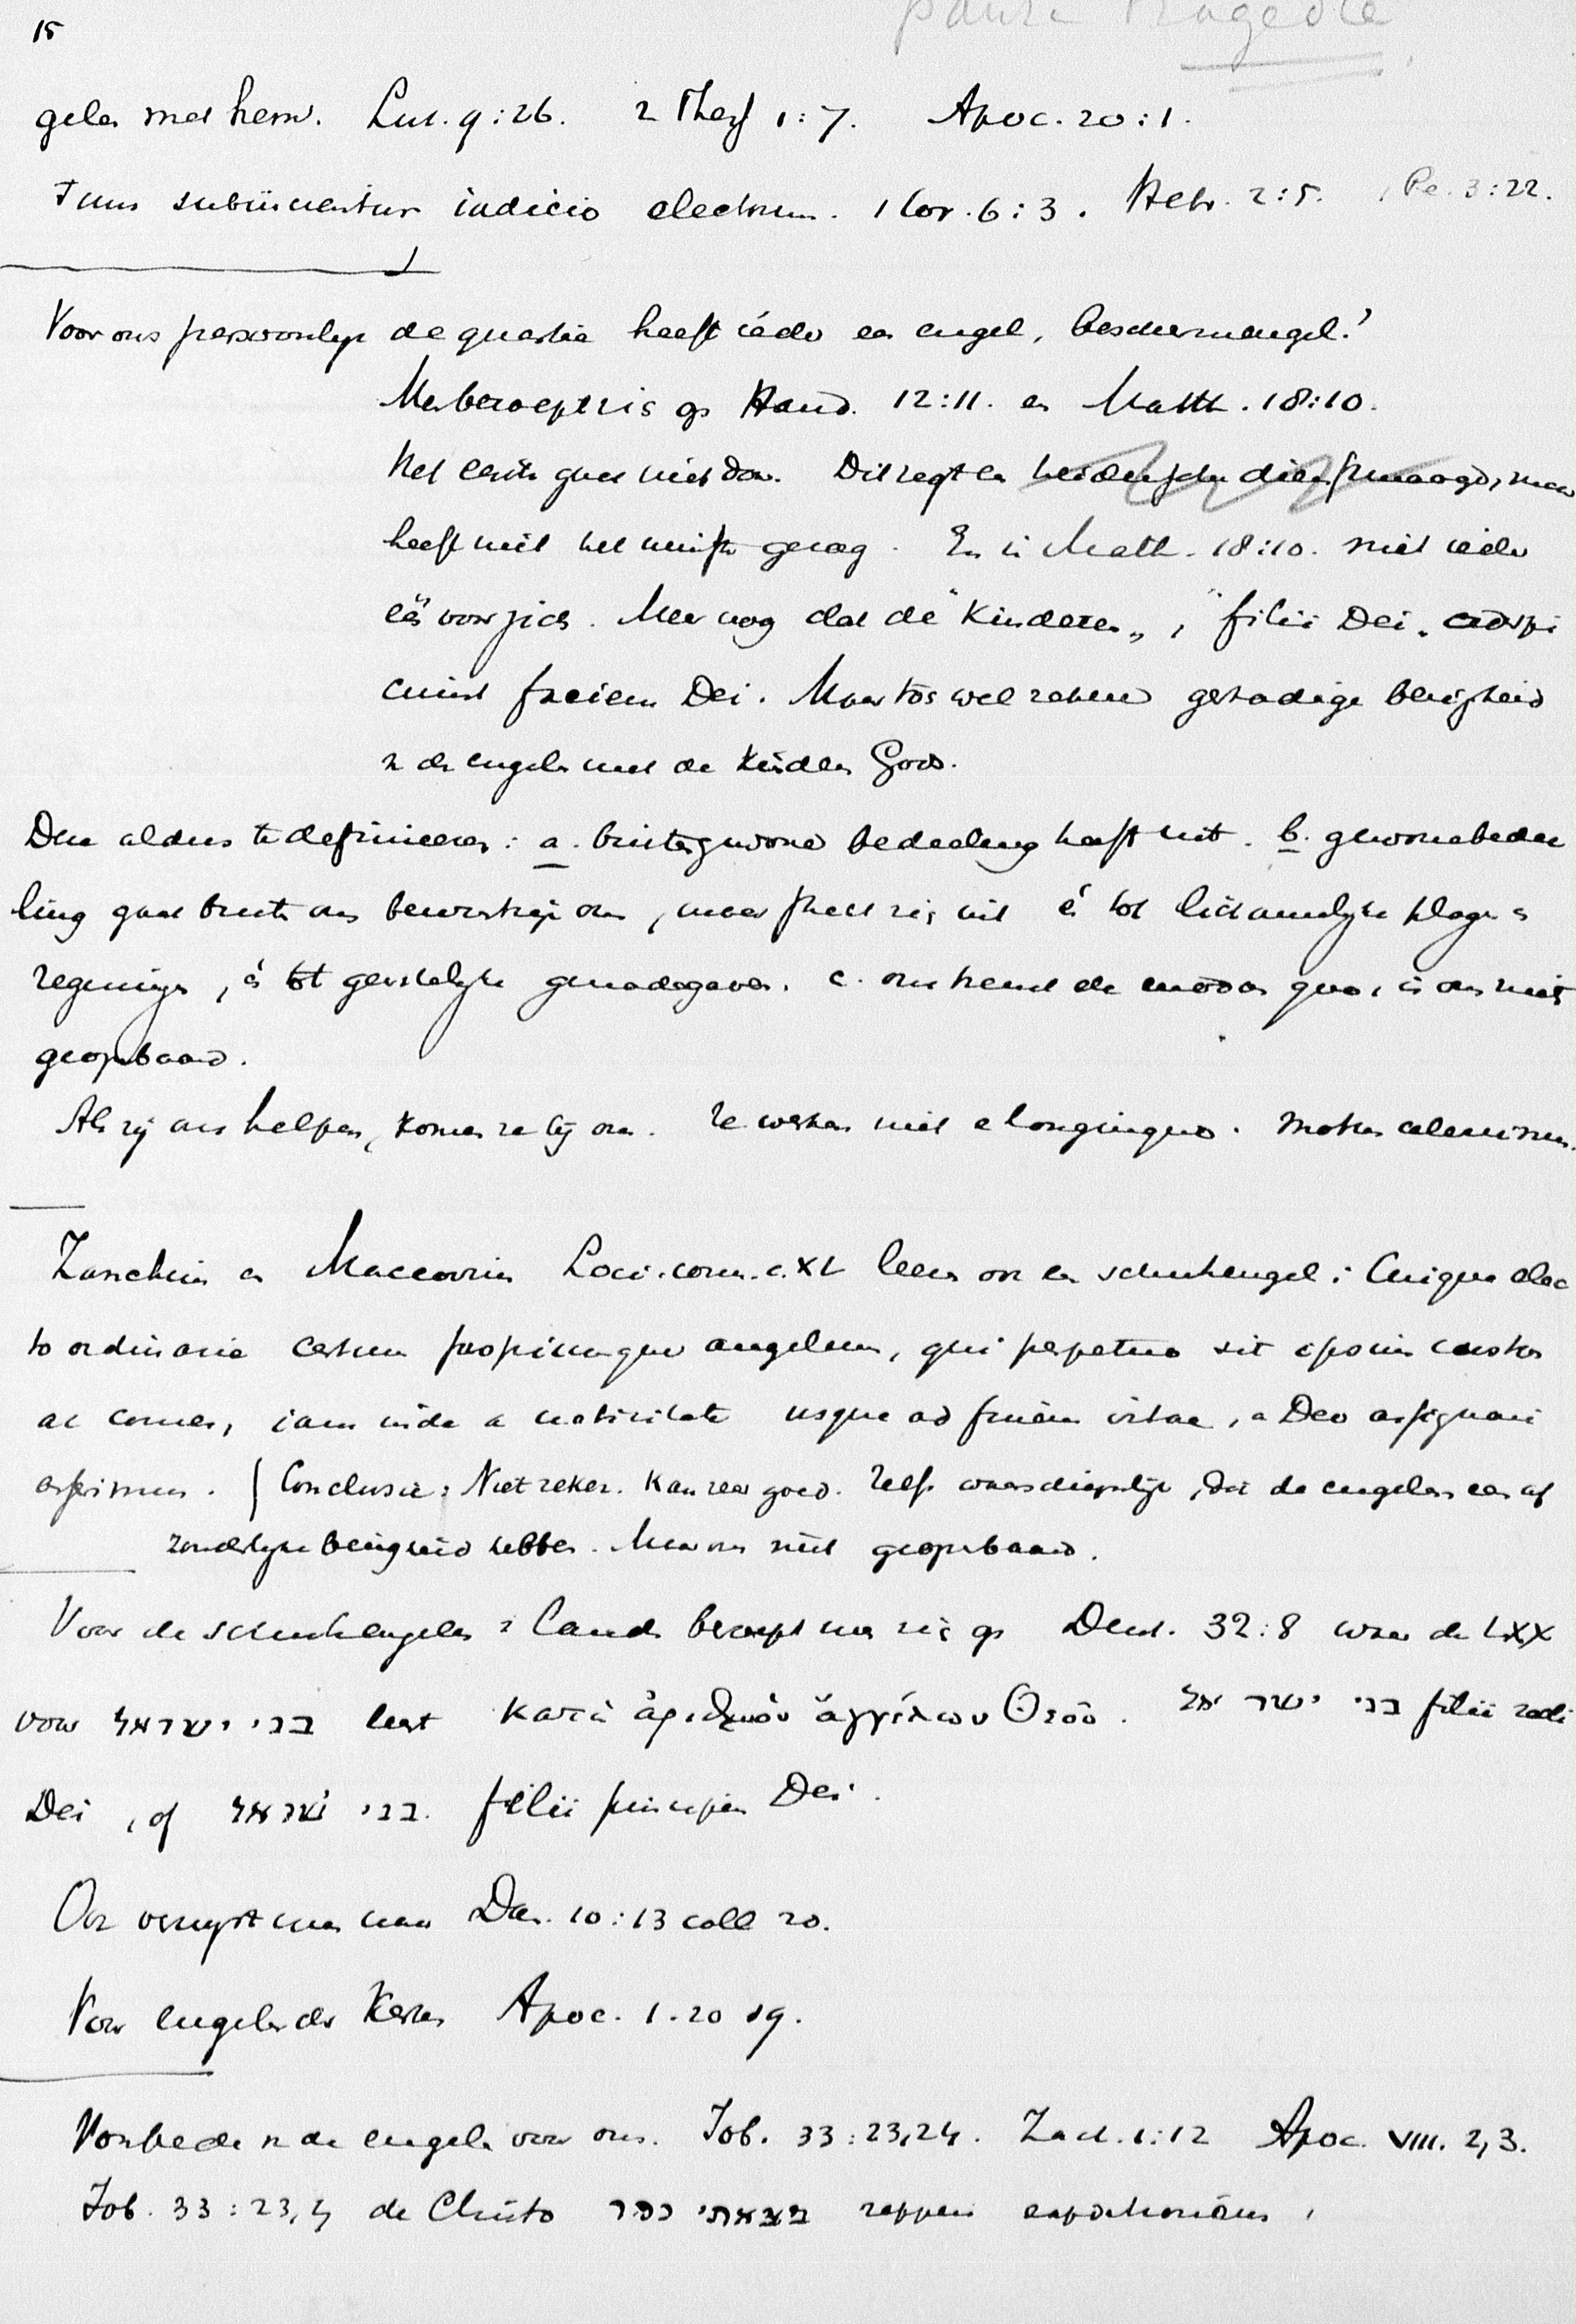 15
tragedie
gelen met hem. Luc. 9:26. 2 Thess 1:7. Apoc. 20:1.
Tum iudicio electorum. 1 Cor. 6:3. Hebr. 2:5. 1 Pe. 3:22.
Voor ons persoonlijk de quaestie heeft ieder een engel, beschermengel?
Men beroept zich op Hand. 12:11. en Matth. 18:10.
Het eerste gaat niet door. Dit zegt een heidensche dienstmaagd, maar
heeft niet het minste gezag. En in Matth. 18:10. niet ieder
één voor zich. Maar nog dat de "Kinderen„, "filii Dei„ adspi
ciunt faciem Dei. Maar toch wel zekere gestadige bezigheid
v. de engelen met de Kinderen Gods.
Dus aldus te definieeren: a. buitengewone bedeeling heeft uit. b. gewone bedee
ling gaat buiten ons bewustzijn om, maar strekt zich uit én tot lichamelijke plagen en
zegeningen, én tot geestelijke genadegaven. c. omtrent de modus quo, is ons niets
geopenbaard.
Als zij ons helpen, komen ze bij ons. Ze werken niet e longinquo.
Zanchius en Maccovius Loci. com. c. XL leeren ook een schutsengel: Cuique elec
to ordinarie certum propriumque angelum, qui perpetuo sit ipsius custos
ac comes, iam inde a nativitate usque ad finem vitae, a Deo assignari
asserimus. | Conclusie: Niet zeker. Kan zeer goed. Zelfs waarschijnlijk, dat de engelen een af
zonderlijke bezigheid hebben. Maar ons niet geopenbaard.
Voor de schutsengelen v. landen beroept men zich op Deut. 32:8 waar de LXX
voor בני ישראל leest κατὰ ἀριθμὸν ἀγγέλων Θεοῦ. בני ישר אל filii recti
Dei, of בני שׂר אל. filii principis Dei.
Ook verwijst men naar Dan. 10:13 coll 20.
Voor engelen der Kerken Apoc. 1.20 sq.
Voorbede v. de engelen voor ons. Job. 33:23,24. Zach. 1:12 Apoc. VIII. 2,3.
Job. 33:23,4 de Christo מצאתי כפר repperi expiationem,